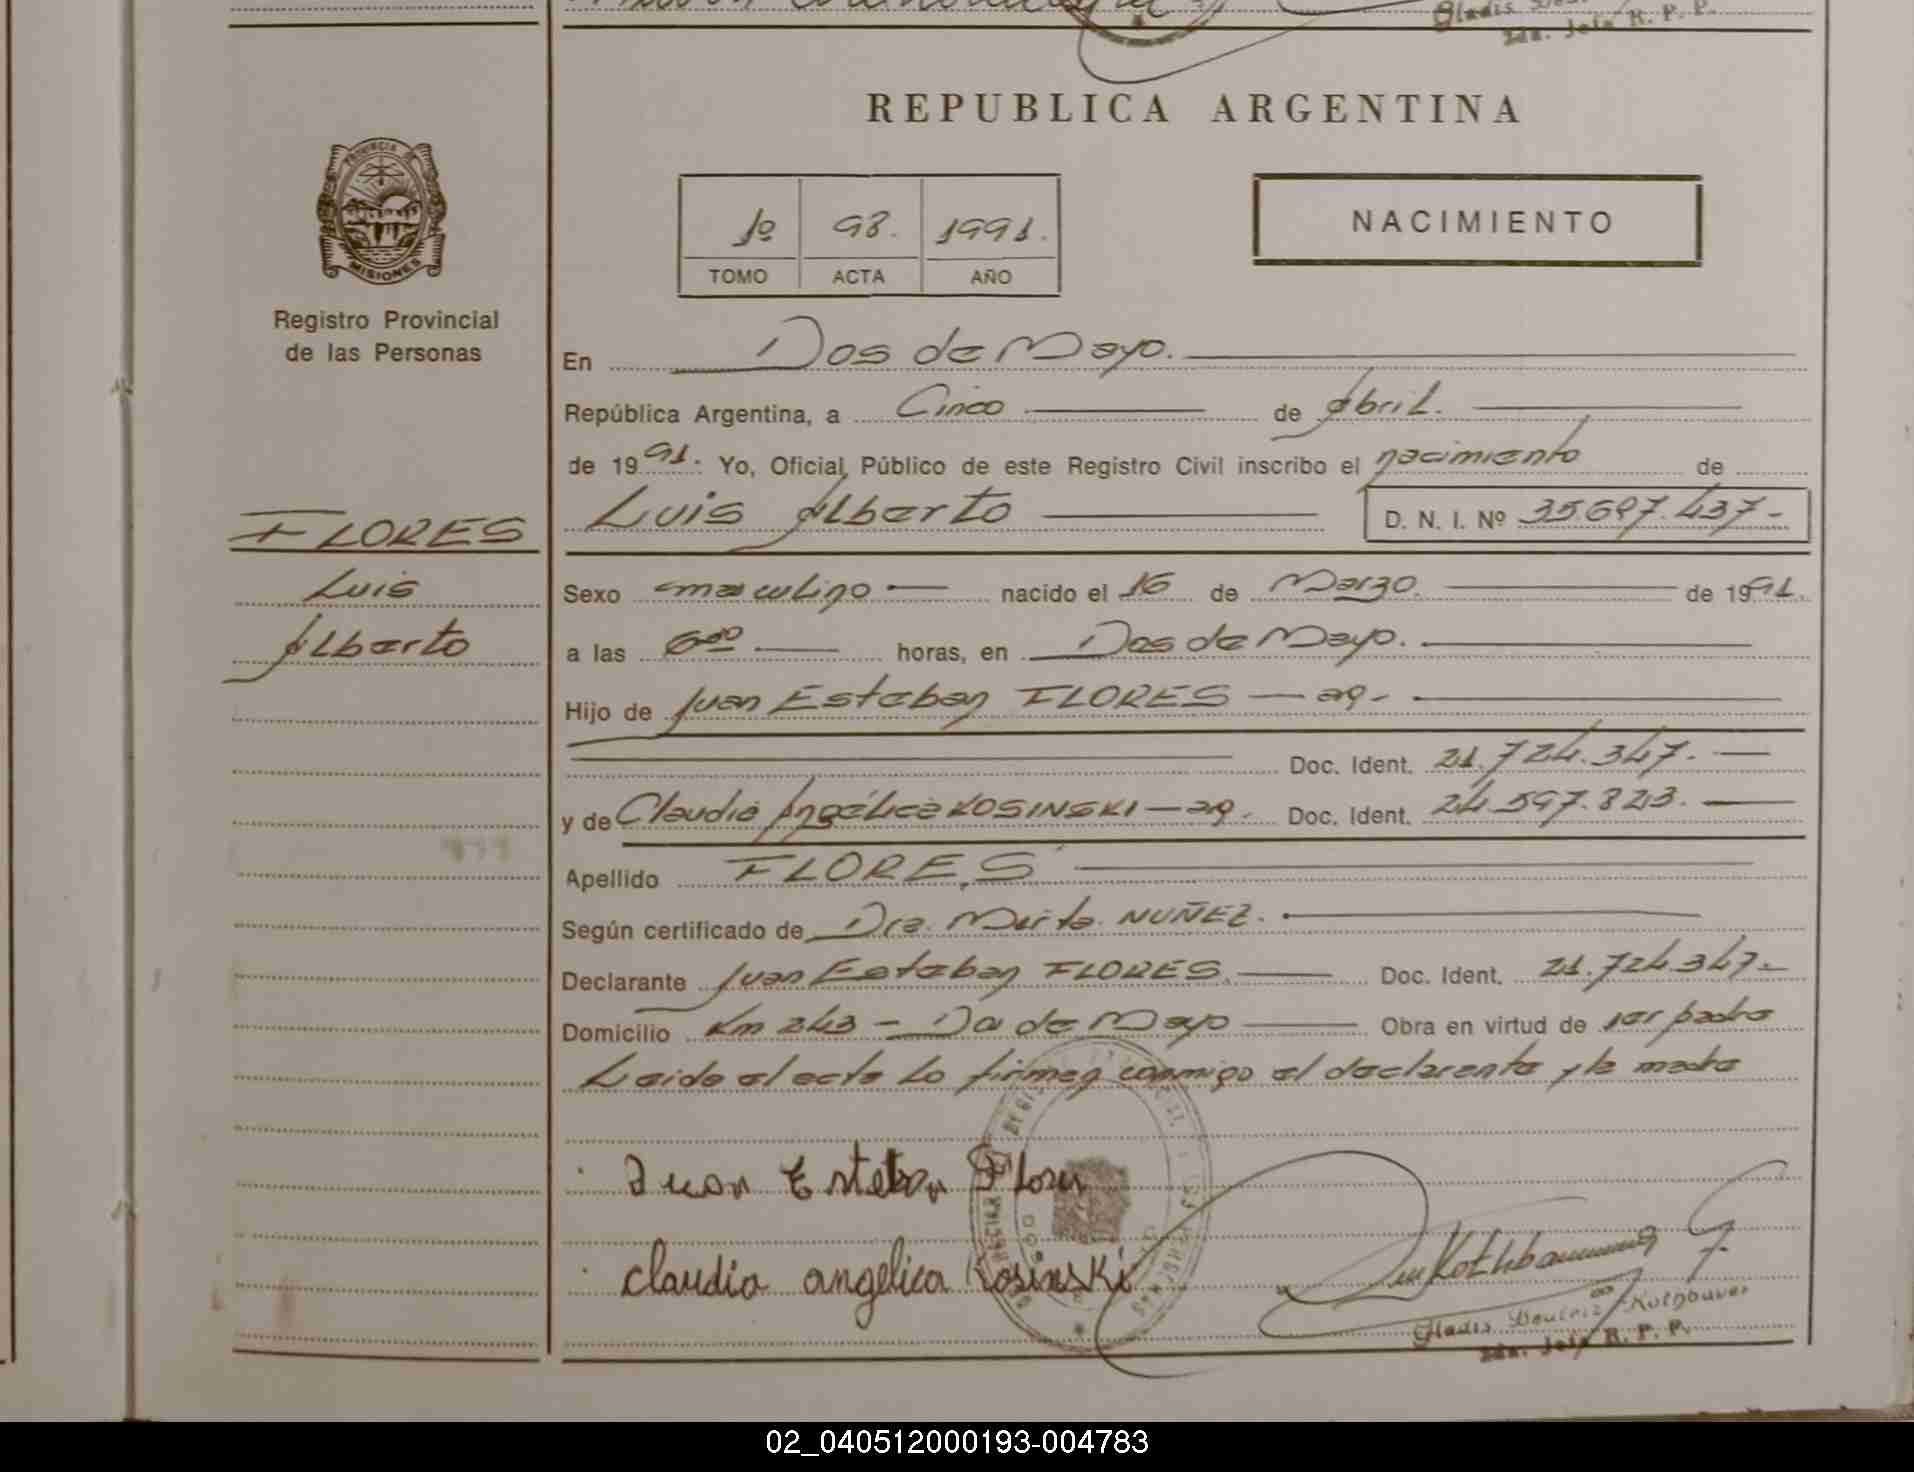 Gladis
2da. Jefa R. P. P.
REPUBLICA ARGENTINA
PROVINCIA DE
MISIONES
Registro Provincial
de las Personas
1º 98. 1991.
TOMO ACTA AÑO
NACIMIENTO
En Dos de Mayo.
República Argentina, a Cinco de Abril.
de 1991: Yo, Oficial Público de este Registro Civil inscribo el nacimiento de
Luis Alberto D. N. I. Nº 35.697.437-
FLORES
Luis
Alberto
Sexo masculino nacido el 16 de Marzo. de 1991.
a las 6:00 horas, en Dos de Mayo.
Hijo de Juan Esteban FLORES - ag-
Doc. Ident. 21.724.347.
y de Claudia Angélica KOSINSKI - ag. Doc. Ident. 24.597.823.
Apellido FLORES
Según certificado de Dra. Mirta NUÑEZ.
Declarante Juan Esteban FLORES. Doc. Ident. 21.724.347-
Domicilio Km 243 - Dos de Mayo Obra en virtud de ser padre
Leida el acta lo firman conmigo el declarante y la madre
Juan Esteban Flores
Claudia angelica Kosinski
Gladis Beatriz Kothbauer
2da. Jefa R. P. P.
02_040512000193-004783